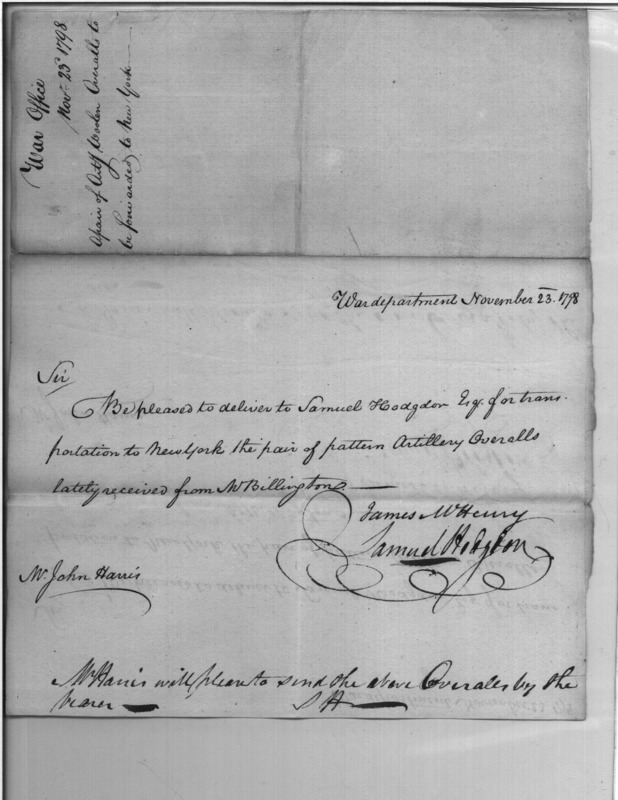 War Office
Novr 23d 1798
A pair of Arty Woolen Overalls to
be forwarded to New York
War department November 23. 1798
Sir
Be pleased to deliver to Samuel Hodgdon Esqr for trans-
portation to New York the pair of pattern Artillery Overalls
lately received from Mr Billington
James McHenry
Samuel Hodgdon
Mr John Harris
Mr Harris will please to send the above Overales by the
bearer
S H